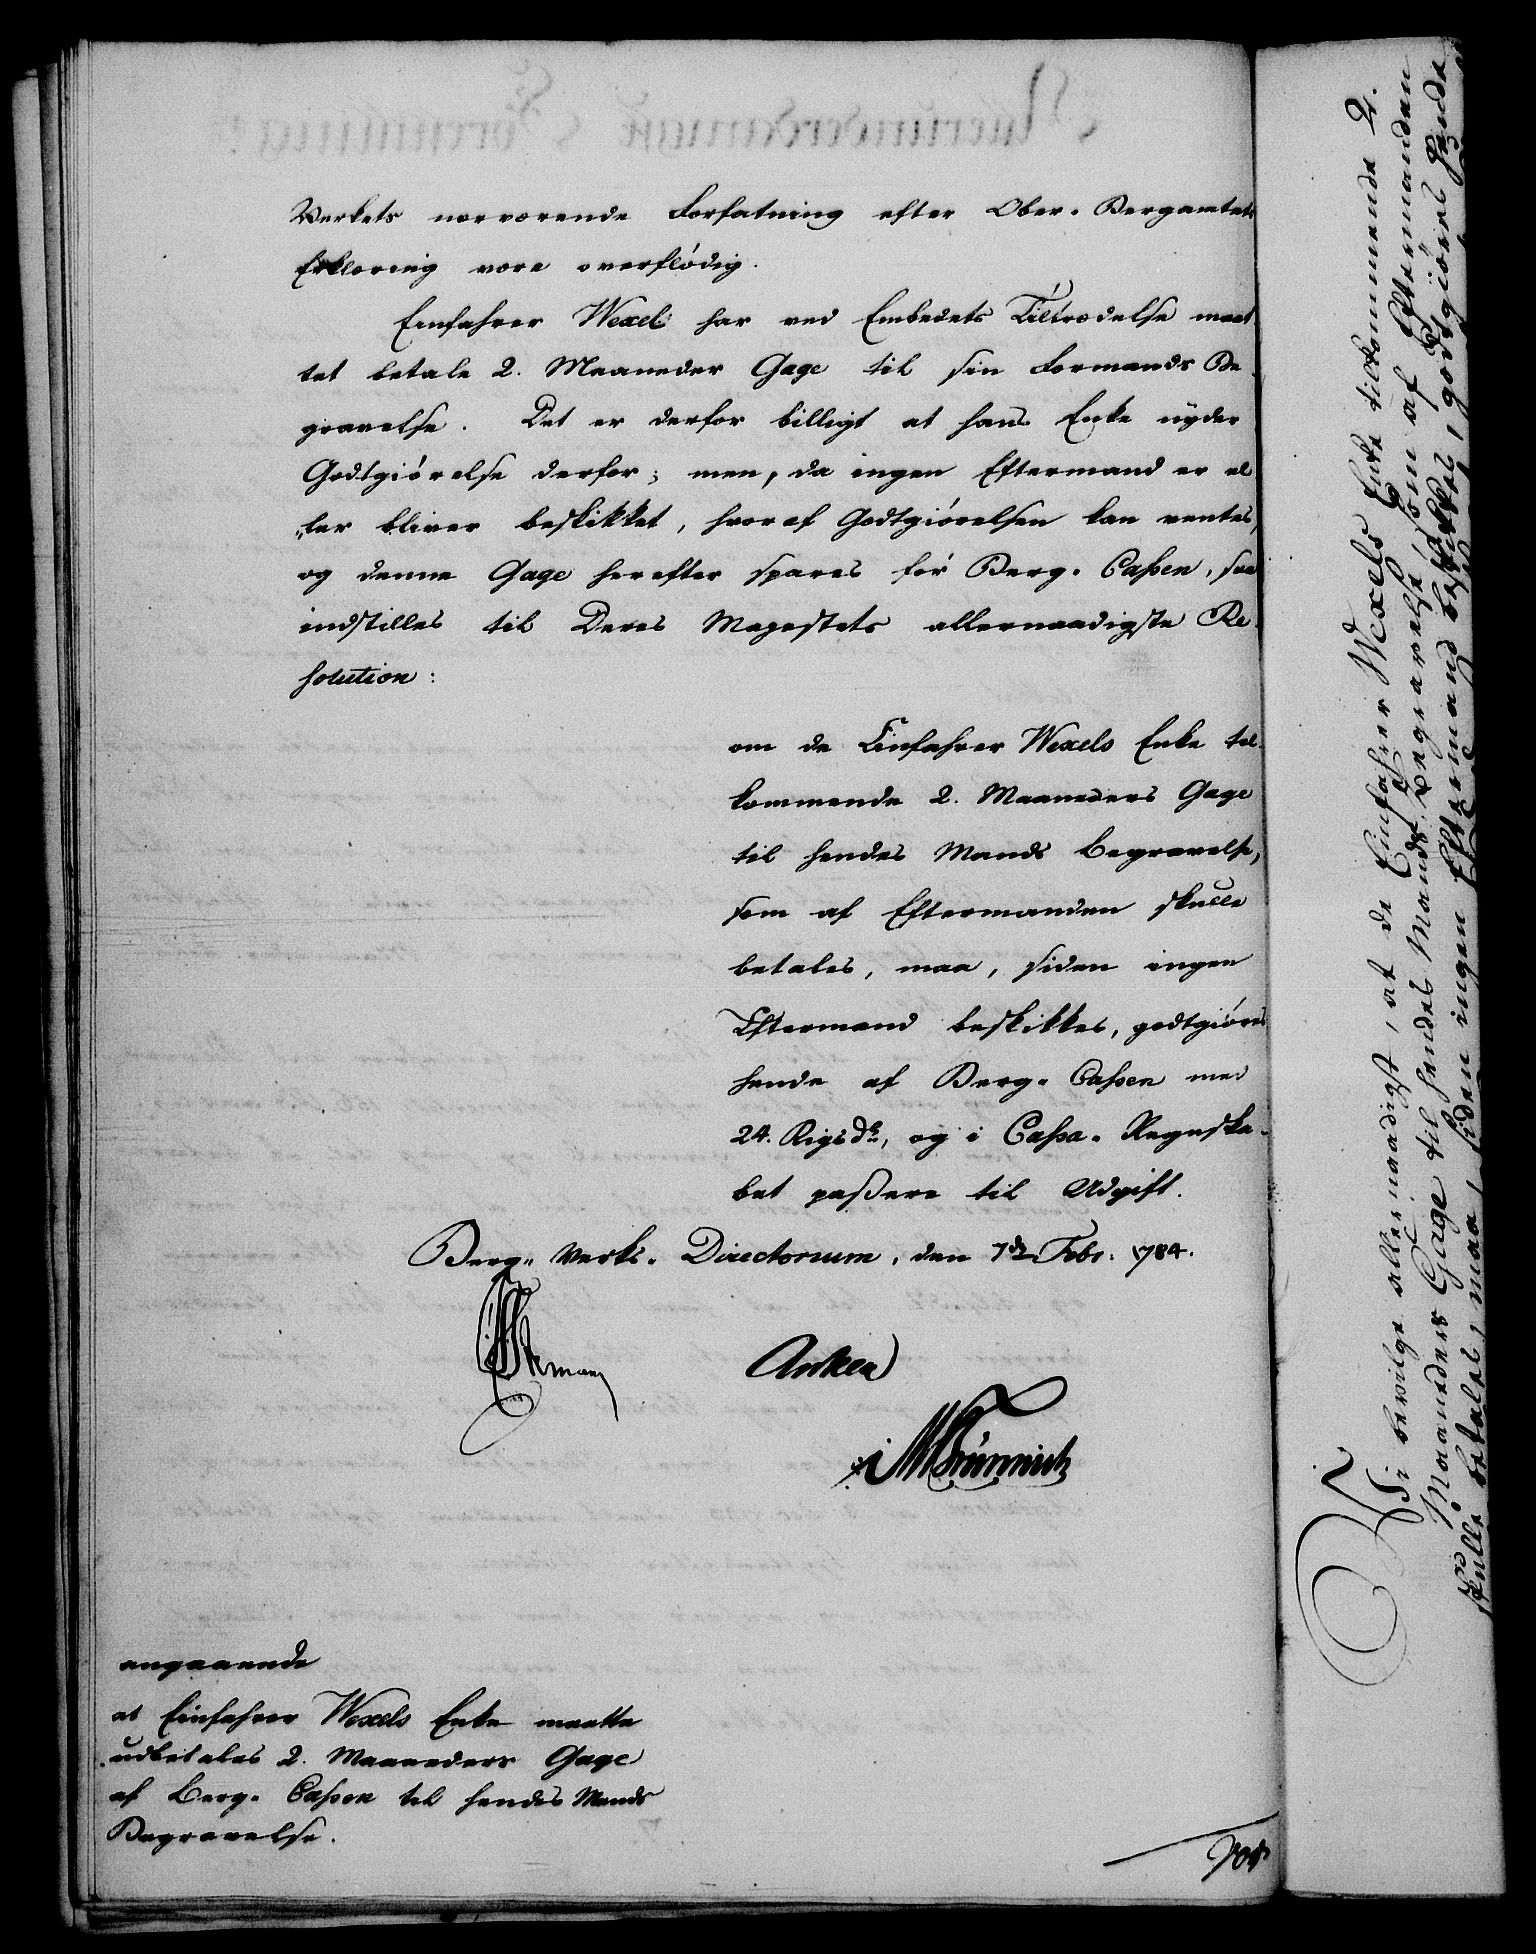 Verkets nærværende Forfatning efter Ober-Bergamtets
Erklæring være overflödig.
Einfahrer Wexel har ved Embedets Tiltrædelse maat
tet betale 2. Maaneder Gage til sin Formands Be-
gravelse. Det er derfor billigt at hans Enke nyder
Godtgiörelse derfor; men, da ingen Eftermand er el
„ler bliver beskikket, hvoraf Godtgiörelsen kan ventes,
og denne Gage herefter spares for Berg-Cassen, saa
indstilles til Deres Majestets allernaadigste Re-
solution:
om de Einfahrer Wexels Enke til-
kommende 2. Maaneders Gage
til hendes Mands Begravelse,
som af Eftermanden skulle
betales, maa, siden ingen
Eftermand beskikkes, godtgiöres
hende af Berg-Cassen med
24. Rigsdr, og i Cassa-Regnska-
bet passere til Udgift.
Berg-Verks-Directorium, den 7de Febr. 1784.
Anker
angaaende
at Einfahrer Wexels Enke maatte
udbetales 2. Maaneders Gage
af Berg-Cassen til hendes Mands
Begravelse.
Vi bevilge allernaadigst, at de Einfahrer Wexels Enke tilkommende 2.
Maaneders Gage til hendes Mands Begravelse, som af Eftermanden
skulle betales, maa, siden ingen Eftermand beskikkes, godtgiöres hende